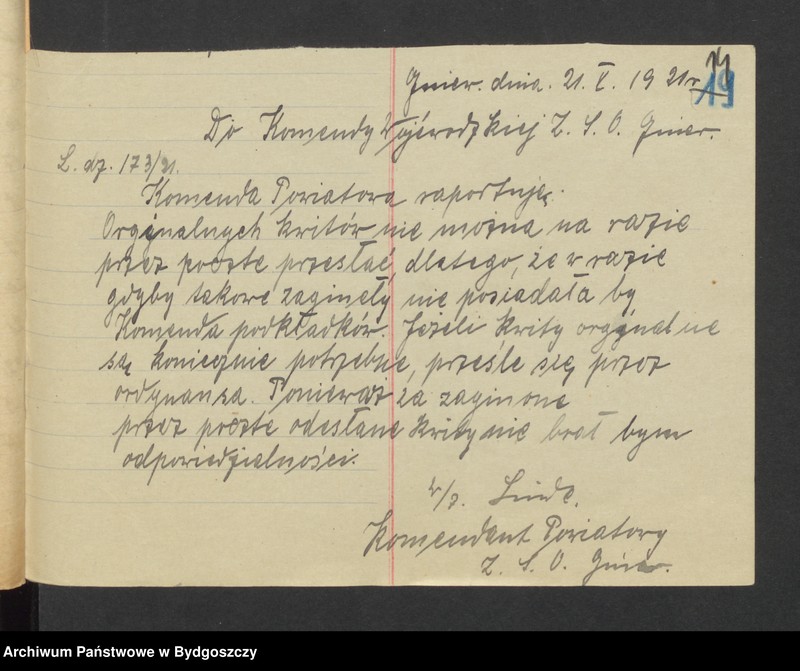 19
Gniew. dnia. 21. V. 1921 r.
Do Komendy Wojewódzkiej Z. S. O. Gniew.
L. dz. 173/21.
Komenda Powiatowa raportuję.
Orgynalnych kwitów nie można na razie
przez pocztę przesłać, dlatego, że w razie
gdyby takowe zaginęły nie posiadała by
Komenda podkładków. Jeżeli kwity orgynalne
są koniecznie potrzebne, prześle się przez
ordynansa. Ponieważ za zaginone
przez pocztę odesłane kwity nie brał bym
odpowiedzialności.
w/z. Linde.
Komendant Powiatowy
Z. S. O. Gniew.
Archiwum Państwowe w Bydgoszczy